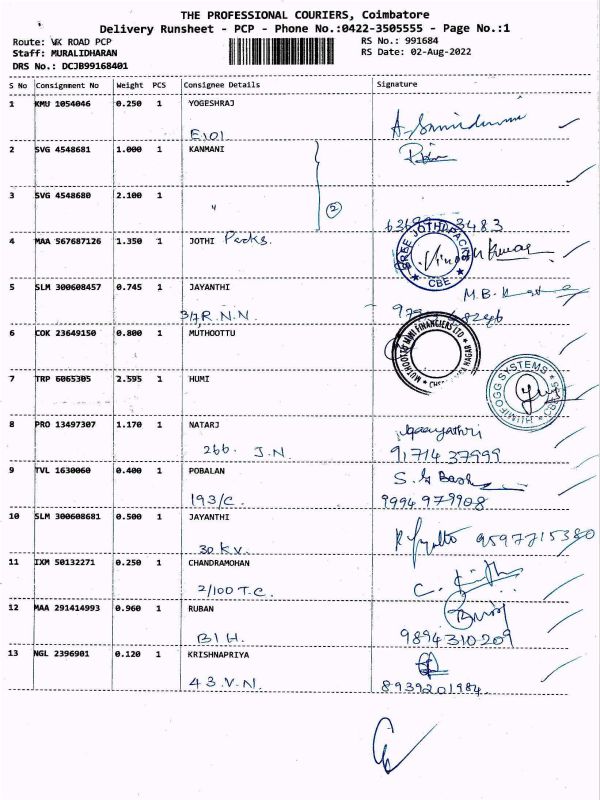 THE PROFESSIONAL COURIERS, Coimbatore
Delivery Runsheet - PCP - Phone No.:0422-3505555 - Page No.:1
Route: VK ROAD PCP
RS No.: 991684
Staff: MURALIDHARAN
RS Date: 02-Aug-2022
DRS No.: DCJB99168401
S No Consignment No Weight PCS Consignee Details Signature
1 KMU 1054046 0.250 1 YOGESHRAJ
E101
2 SVG 4548681 1.000 1 KANMANI
3 SVG 4548680 2.100 1 "
2
4 MAA 567687126 1.350 1 JOTHI Packs.
SREE JOTHI PACKS
CBE
5 SLM 300608457 0.745 1 JAYANTHI
M.B.
317, R.N.N.
6 COK 23649150 0.800 1 MUTHOOTTU
MUTHOOTTU MINI FINANCIERS LTD
7 TRP 6065305 2.595 1 HUMI
HUMIFOGG SYSTEMS
CBE
8 PRO 13497307 1.170 1 NATARJ
266. J.N. 91714 37999
9 TVL 1630060 0.400 1 POBALAN
193/C. 9994979908
10 SLM 300608681 0.500 1 JAYANTHI
9597715380
30 K.V.
11 IXM 50132271 0.250 1 CHANDRAMOHAN
2/100 T.C.
12 MAA 291414993 0.960 1 RUBAN
B1H. 9894310209
13 NGL 2396901 0.120 1 KRISHNAPRIYA
43.V.N. 8939201984